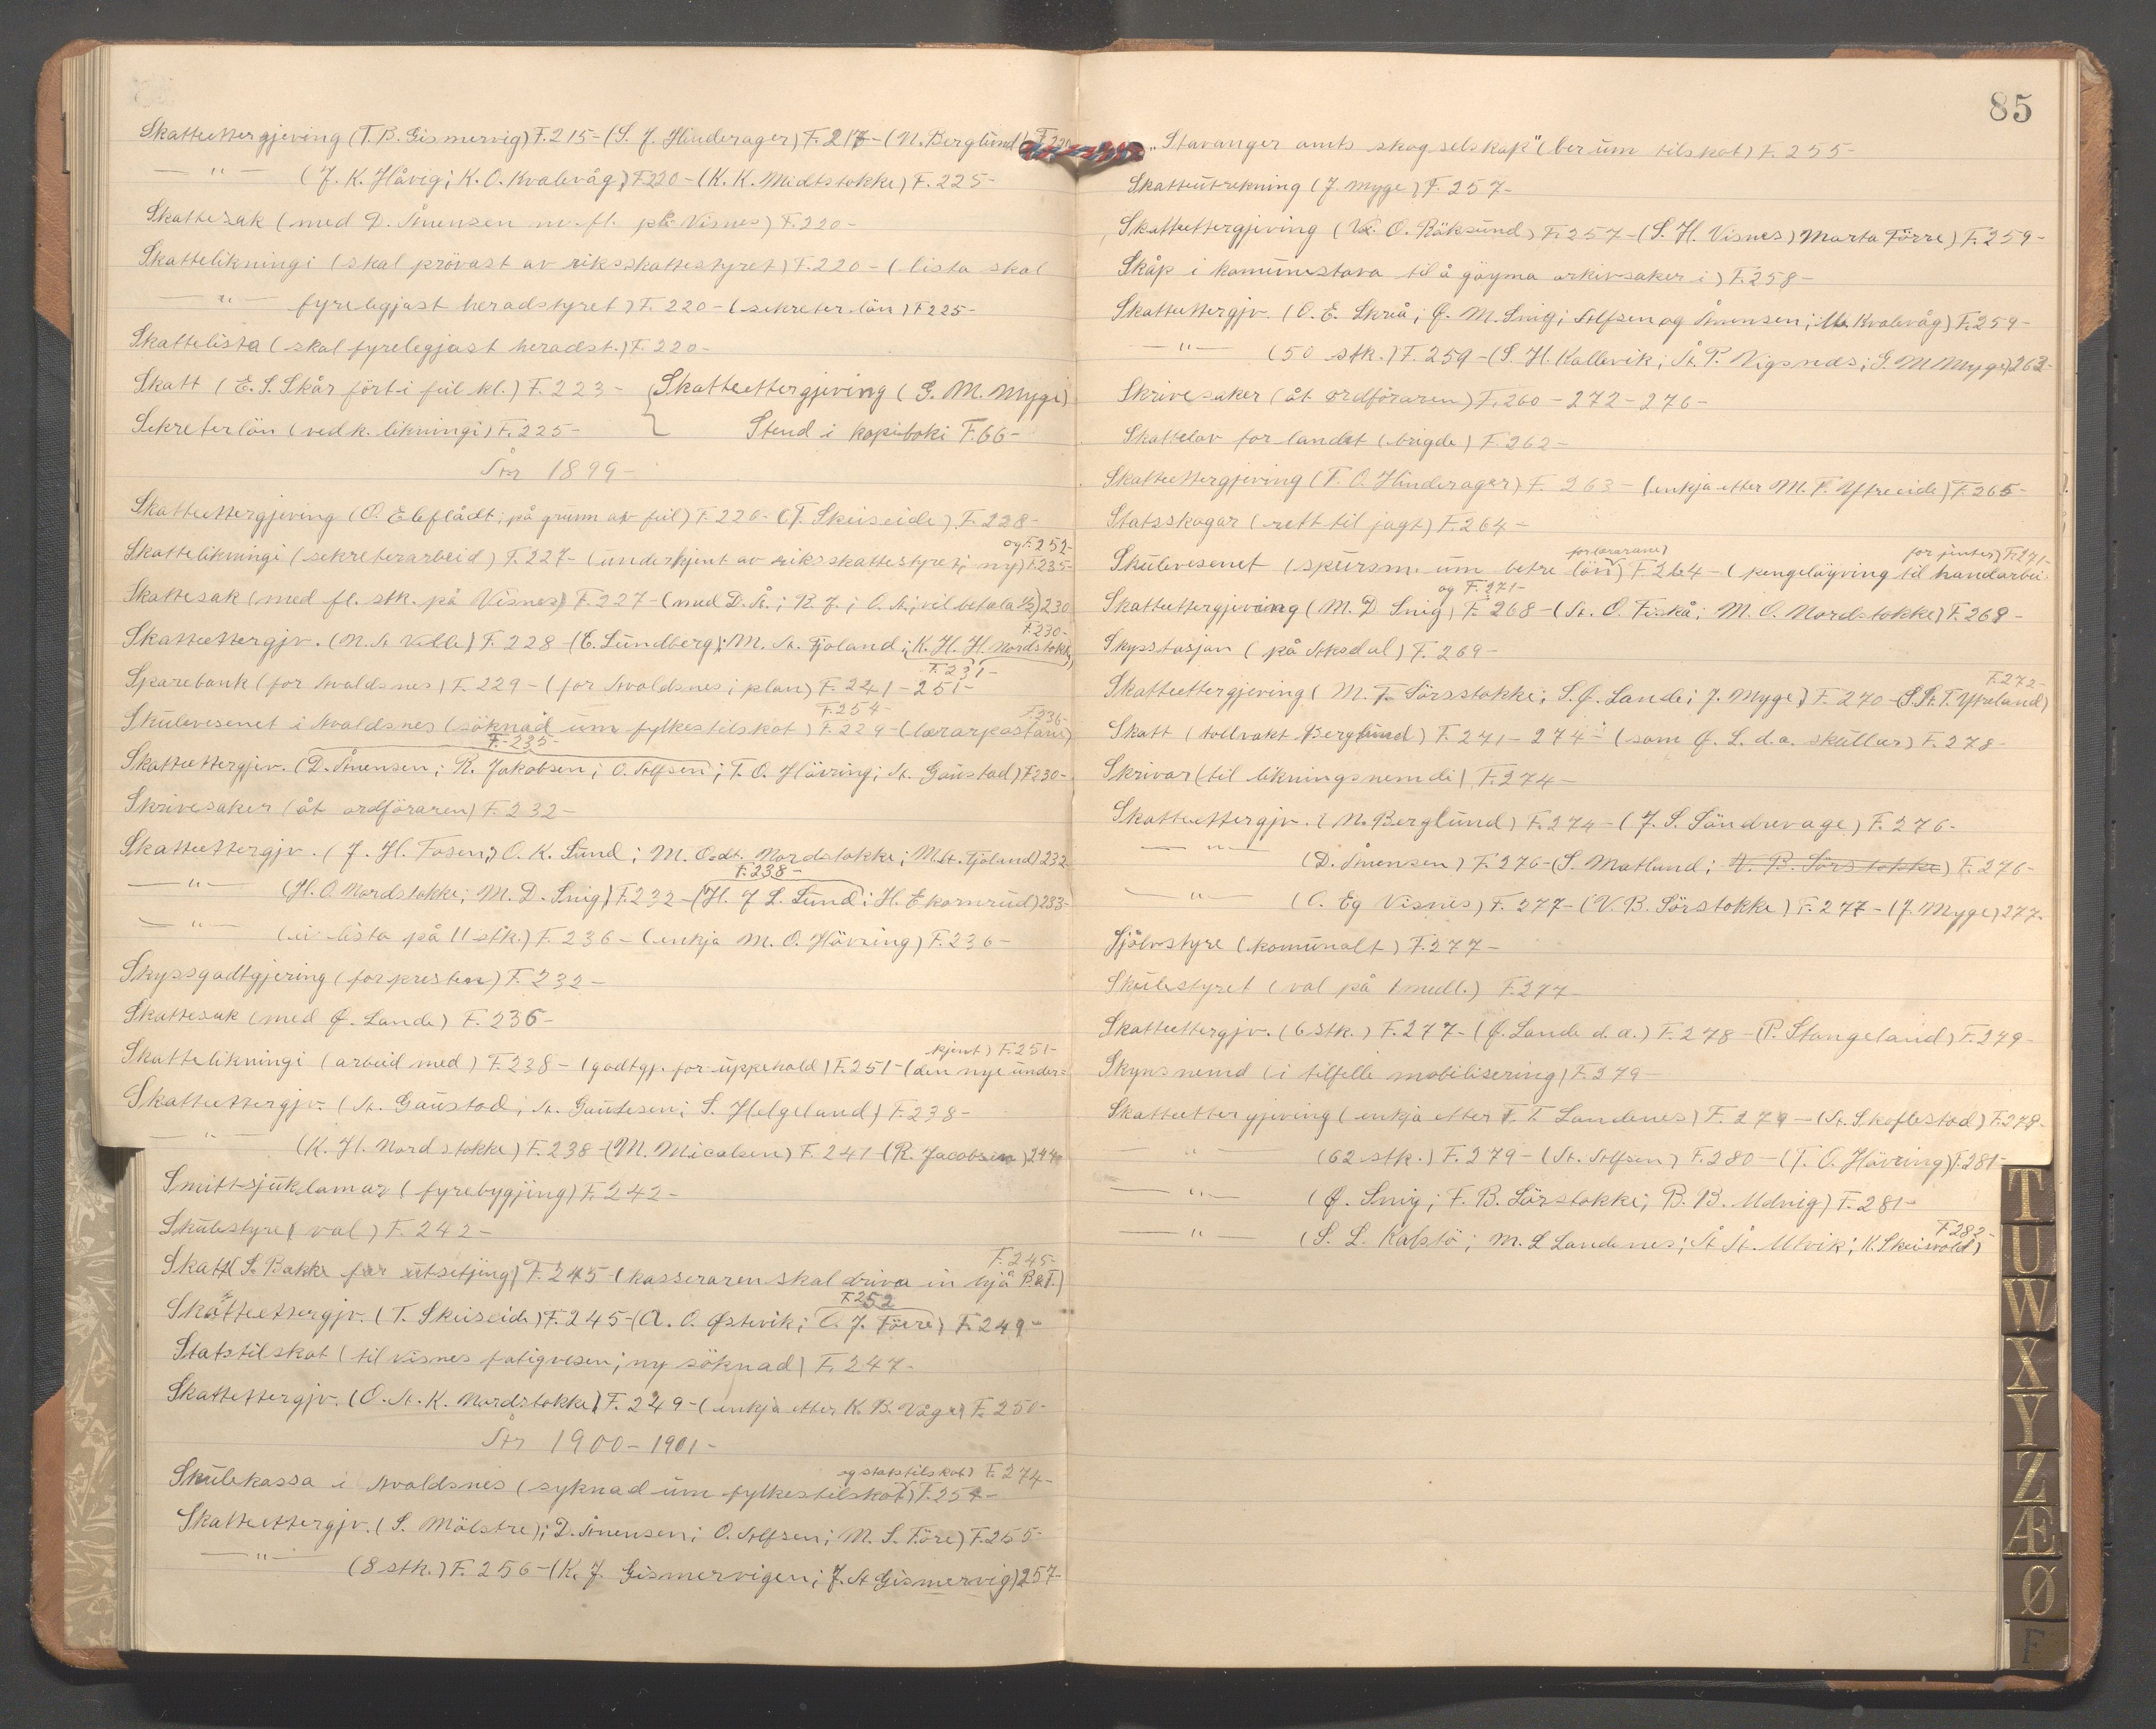 Skatteettergjeving (T. B. Gismervig) F. 215 - (S. J. Hinderager) F. 217 - (N. Berglund) F. 220
— " — (J. K. Håvig; K. O. Kvalevåg) F. 220 - (K. K. Midtstokke) F. 225 -
Skattesak (med D. Ånensen m. fl. på Visnes) F. 220 -
Skattelikningi (skal prövast av riksskattestyret) F. 220 - (lista skal
— " — fyreleggjast heradstyret) F. 220 - (sekreter lön) F 225 -
Skattelista (skal fyrelegjast heradst.) F. 220 -
Skatt (E. S. Skår fört i feil kl.) F. 223 - Skatteettergjeving (G. M. Myge)
Sekreterlön (ved k. likningi) F. 225 - Stend i kopiboki F. 66 -
År 1899 -
Skatteettergjeving (O. Eleflådt; på grunn av feil) F. 226 - (T. Skeiseide) F. 228 -
og F. 252 -
Skattelikningi (sekreterarbeid) F. 227 - (underkjent av riksskattestyret; ny) F. 235 -
Skattesak (med fl. stk. på Visnes) F. 227 - (med D. Å.; R. J.; O. A.; vil betala 1/2) 230
F. 230 -
Skatteettergjv. (N. A Valle) F. 228 - (E. Lundberg); M. A. Tjøland; K. H. H. Nordstokke)
F. 231 -
Sparebank (for Avaldsnes) F. 229 - (for Avaldsnes; plan) F. 241 - 251 -
F. 254 - F. 236 -
Skulevesenet i Avaldsnes (söknad um fylkestilskot) F. 229 - (lærarpostane)
F. 235 -
Skatteettergjev. (D. Ånensen; R. Jakobsen; O. Alfsen; T. O. Hävring; A. Gaustad) F. 230 -
Skrivesaker (åt ordföraren) F. 232 -
Skatteettergjv. (J. H. Fosen; O. K. Lund; M. O. Nordstokke; M. A. Tjøland) 232
F. 238 -
— " — (H. O. Nordstokke; M. D. Snig) F. 232 - (H. J L. Lund; H. Ekornrud) 233 -
— " — (ei lista på 11 stk.) F. 236 - (enkja M. O. Hövring) F. 236 -
Skyssgodtgjering (for presten) F. 232 -
Skattesak (med G. Lande) F. 236 -
kjent) F. 251 -
Skattelikningi (arbeid med) F. 238 - (godtgj. for uppehald) F. 251 - (den nye under=
Skatteettergjv. (A. Gaustad; A. Gautesen; S. Helgeland) F. 238 -
— " — (K. H. Nordstokke) F. 238 - (M. Micalsen) F. 241 - (R. Jacobsen) 244
Smittsjuklamar (fyrebygjing) F. 242 -
Skulestyre (val) F. 242 -
F. 245 -
Skatt (S. Bakke for utsetjing) F. 245 - (kasseraren skal driva in hjå B. & T.)
F. 252
Skatteettergjv. (T. Skeiseide) F. 245 - (A. O. Østevik; O. J. Förre) F. 249 -
Statstilskot (til visnes fatigvesen; ny söknad) F. 247 -
Skatteettergjv. (O. A. K. Nordstokke) F. 249 - (enkja etter K. B. Våge) F. 250 -
År 1900 - 1901 -
og statstilskot) F. 274 -
Skulekassa i Avaldsnes (syknad um fylkestilskot) F. 254 -
Skatteettergjv. (S. Mölstre); D. Ånensen; O. Alfsen; M. S. Före) F. 255 -
— " — (8 stk.) F. 256 - (K. J. Gismervigen; J. A Gismervig) 257 -
85
„Stavanger amts skogselskap" (ber um tilskot) F. 255 -
Skatteutrekning (J. Myge) F. 257 -
Skatteettergjeving (O. Röksund) F. 257 - (S. H. Visnes) Marta Förre) F. 259 -
Skåp i komunestova til å göyma arkivsaker i) F. 258 -
Skatteettergjv. (O. E. Skrea; G. M. Snig; Alfsen og Ånensen; Kvalevåg) F. 259 -
— " — (50 stk.) F. 259 - (S. H. Kallevik; A. P. Vigsnes; G. M Myge) 262 -
Skrivesaker (åt ordföraren) F. 260 - 272 - 276 -
Skattelov for landet (brigde) F. 262 -
Skatteettergjeving (T. O. Hinderager) F. 263 - (enkja etter M. T. Ytreeide) F. 265 -
Statsskogar (rett til jagt) F. 264 -
for lærarane) for jenter) F. 271 -
Skulevesenet (spursm. um betre lön) F. 264 - (pengelöyving til handarbei
og F. 271 -
Skatteettergjeving (M. D Snig) F. 268 - (A. O. Feskå; M. O. Nordstokke) F. 268 -
Skysstasjon (på Aksdal) F. 269 -
F. 272 -
Skatteettergjeving (M. T. Sörsstokke; S. G. Lande; J. Myge) F. 270 - (S. A. T. Ytreland)
Skatt (tollvakt Berglund) F. 271 - 274 - (som G. L. d. a. skuldar) F. 278 -
Skrivar (til likningsnemdi) F. 274 -
Skatteettergjv. (N. Berglund) F. 274 - (J. S. Söndrevåge) F. 276 -
— " — (D. Ånensen) F. 276 - (S. Matlund; V. B. Sörstokke) F. 276 -
— " — (O. Eg Visnes) F. 277 - (V. B. Sörstokke) F. 277 - (J. Myge) 277.
Sjölvstyre (komunalt) F. 277 -
Skulestyret (val på 1 medl.) F. 277 -
Skatteettergjv. (6 stk.) F. 277 - (G. Lande d. a.) F. 278 - (P. Stangeland) F. 279 -
Skynsnemd (i tilfelle mobilisering) F. 279 -
Skatteettergjeving (enkja etter T. T. Landenes) F. 279 - (A. Skeflestad) F. 279 -
— " — (62 stk.) F. 279 - (A. Alfsen) F. 280 - (T. O. Hävring) F. 281 -
— " — (G. Snig; T. B. Sörstokke; B. B. Udnig) F. 281 -
F. 282 -
— " — (S. L. Kalstö; M. L Landenes; A A. Utvik; K. Skeisvold)
T
U
W
X
Y
Z
Æ
Ø
F